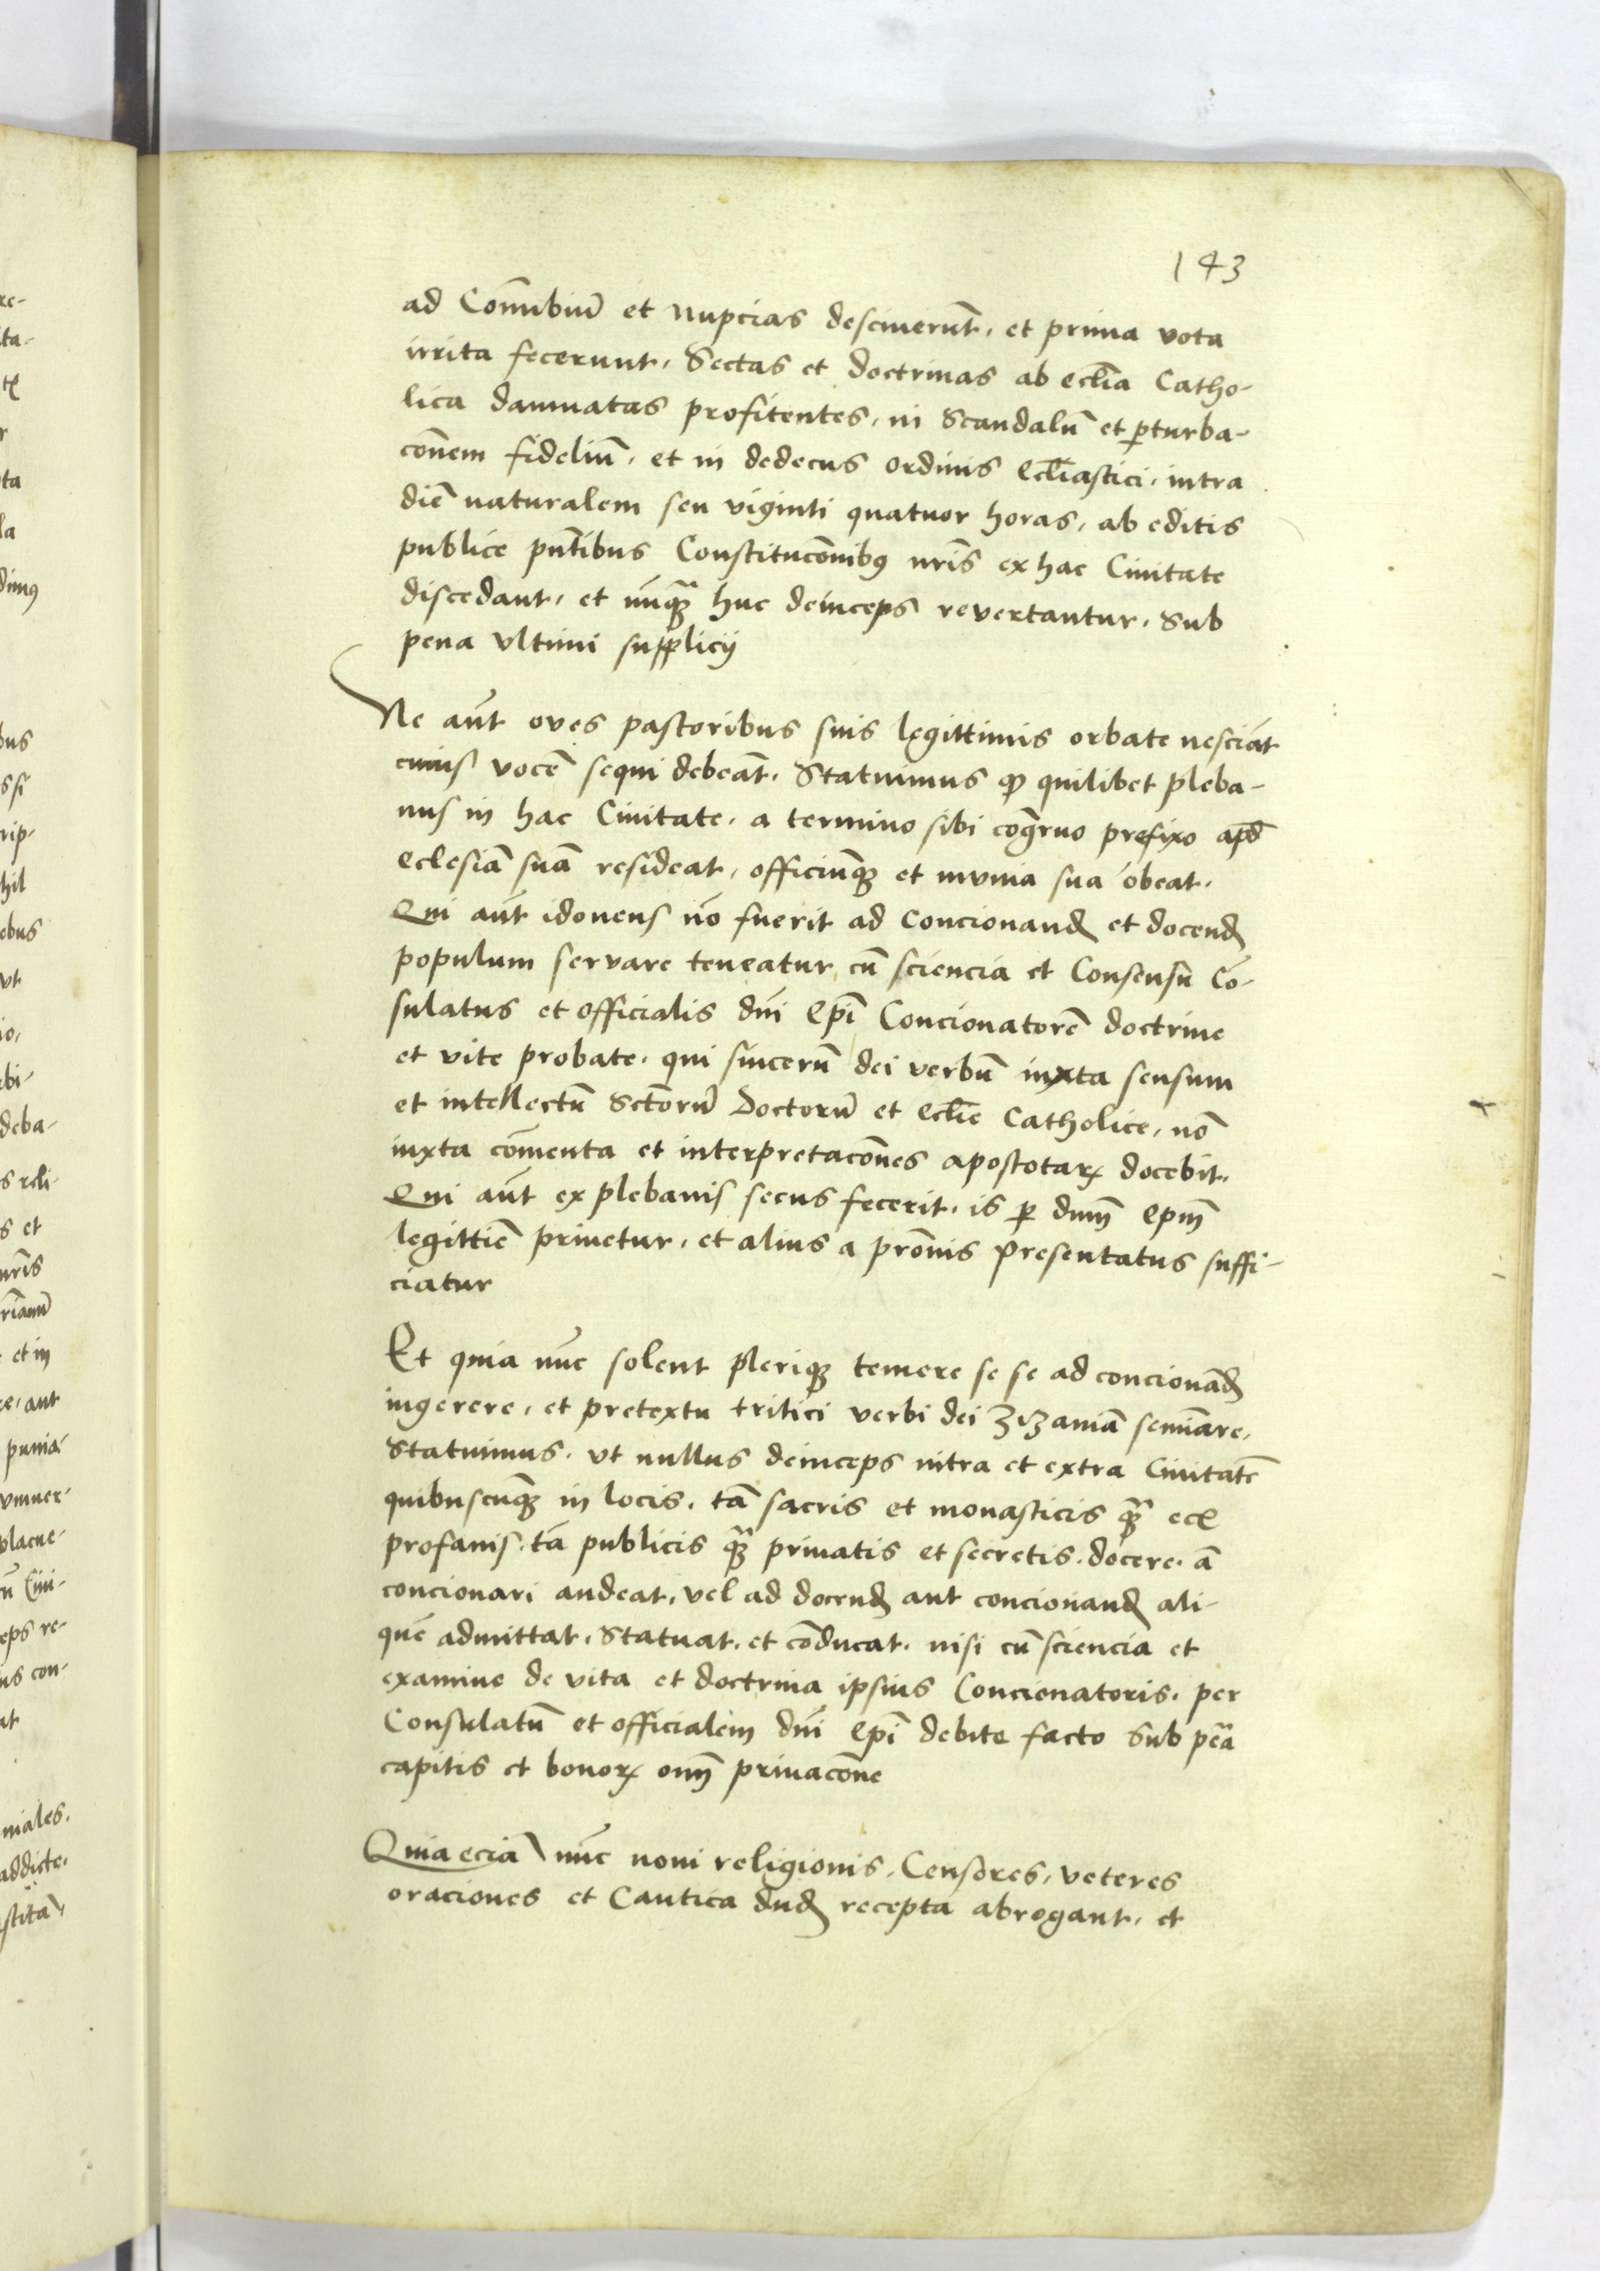 143
ad Coñubiũ et nupcias desciuerũt, et prima vota
irrita fecerunt, Sectas et doctrinas ab ecl̃ia Catho-
lica damnatas profitentes, in Scandalũ et ꝑturba-
cõnem fideliũ, et in dedecus ordinis ecl̃iastici, intra
diẽ naturalem seu viginti quatuor horas, ab editis
publice pñtibus Constitucõnibꝰ nr̃is ex hac Ciuitate
discedant, et nũqꝫ huc deinceps revertantur, Sub
pena vltimi supplicij
Ne aũt oves pastoribus suis legittimis orbate nesciãt
cuius vocẽ sequi debeãt, Statuimus qꝫ quilibet pleba-
nus in hac Ciuitate, a termino sibi cõgruo prefixo apd̃
eclesiã suã resideat, officiũqꝫ et mvnia sua obeat.
Qui aũt idoneus nõ fuerit ad concionand̃ et docend̃
populum servare teneatur cũ sciencia et Consensu Cõ-
sulatus et officialis dñi ep̃i Concionatorẽ doctrine
et vite probate, qui sincerũ dei verbũ iuxta sensum
et intellectũ Sctõrũ Doctorũ et ecl̃ie Catholice, nõ
iuxta cõmenta et interpretacõnes apostotaꝝ docebit.
Qui aũt ex plebanis secus fecerit, is ꝑ dnm̃ epm̃
legittiẽ priuetur, et alius a prõnis presentatus suffi-
ciatur
Et quia nũc solent pleriqꝫ temere se se ad concionãd̃
ingerere, et pretextu tritici verbi dei zizaniã semĩare,
Statuimus, vt nullus deinceps intra et extra Ciuitatẽ
quibuscũqꝫ in locis, tã sacris et monasticis qꝫ̃ eciã
profanis, tã publicis qꝫ̃ priuatis et secretis, docere, a
concionari audeat, vel ad docend̃ aut concionand̃ ali-
quẽ admittat, Statuat, et cõducat, nisi cũ sciencia et
examine de vita et doctrina ipsius Concionatoris, per
Consulatũ et officialem dñi ep̃i debite facto Sub pẽa
capitis et bonoꝝ om̃ priuacõne
Quia eciã nũc noui religionis, Censores, veteres
oraciones et Cantica dud̃ recepta abrogant, et